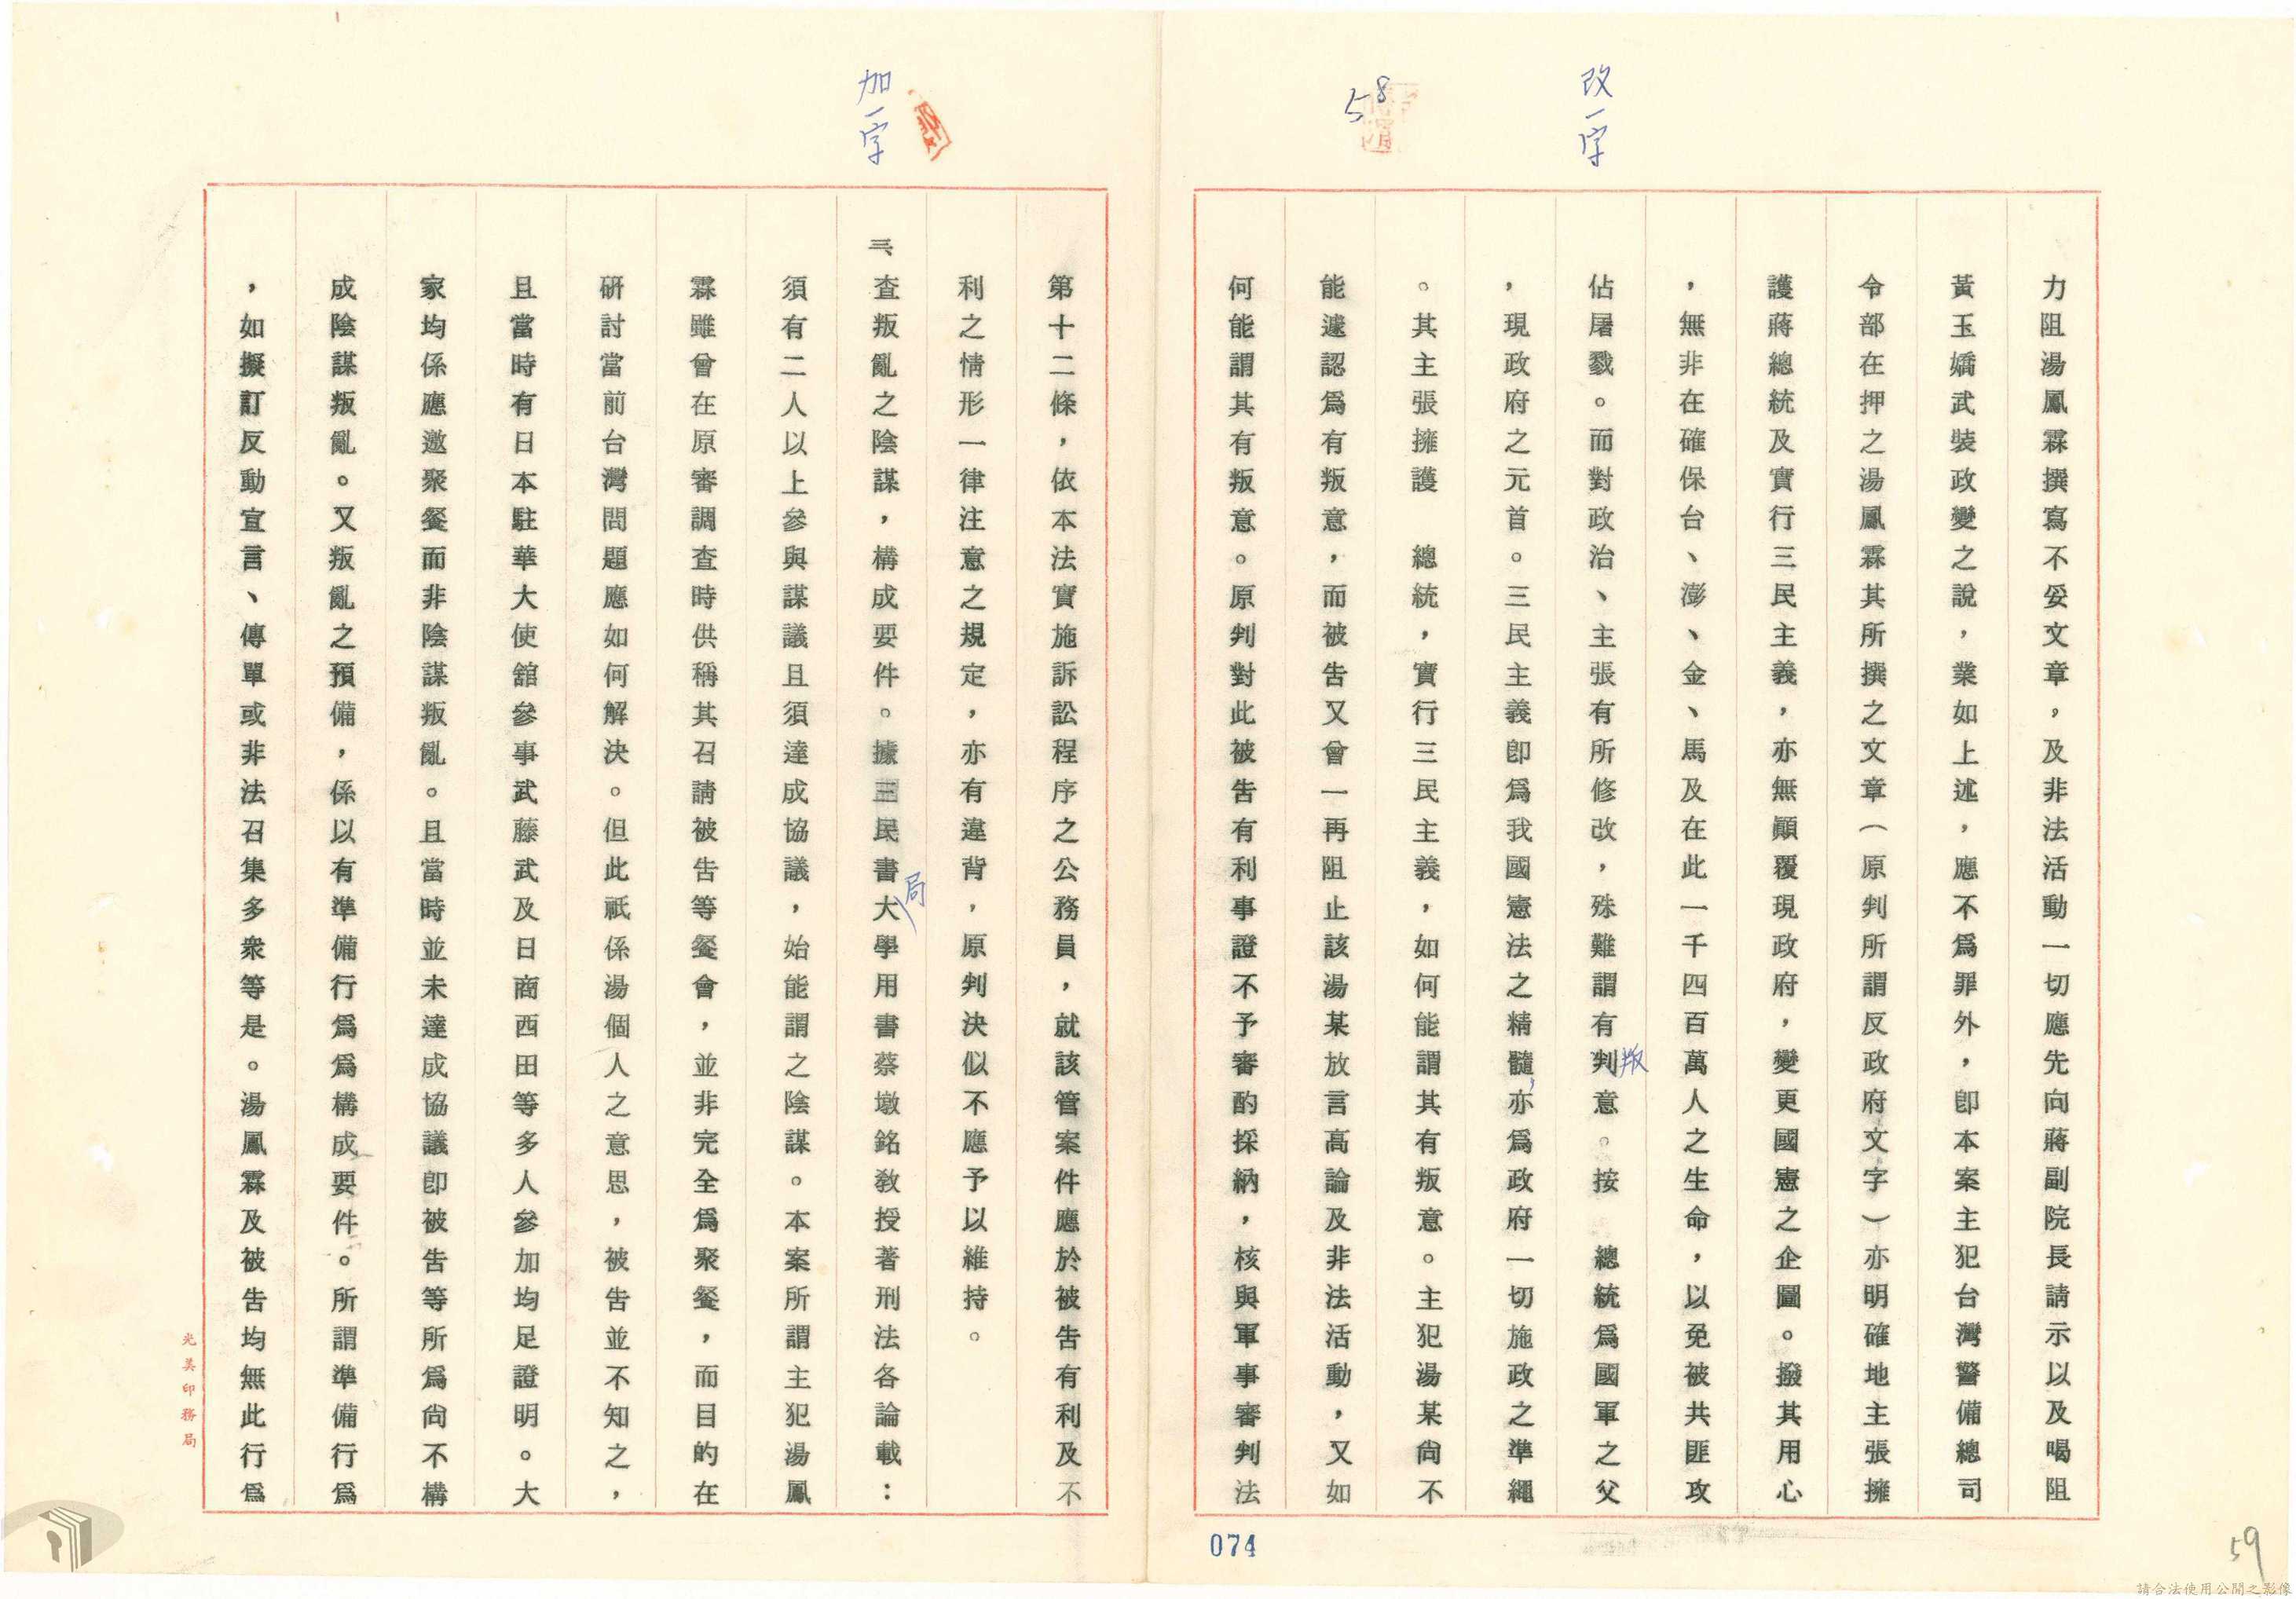 改一字
58
力阻湯鳳霖撰寫不妥文章，及非法活動一切應先向蔣副院長請示以及喝阻
黃玉嬌武裝政變之說，業如上述，應不為罪外，卽本案主犯台灣警備總司
令部在押之湯鳳霖其所撰之文章（原判所謂反政府文字）亦明確地主張擁
護蔣總統及實行三民主義，亦無顚覆現政府，變更國憲之企圖。撥其用心
，無非在確保台、澎、金、馬及在此一千四百萬人之生命，以免被共匪攻
佔屠戮。而對政治、主張有所修改，殊難謂有判叛意。按　總統爲國軍之父
，現政府之元首。三民主義卽爲我國憲法之精髓，亦爲政府一切施政之準繩
。其主張擁護　總統，實行三民主義，如何能謂其有叛意。主犯湯某尙不
能遽認爲有叛意，而被告又曾一再阻止該湯某放言高論及非法活動，又如
何能謂其有叛意。原判對此被告有利事證不予審酌採納，核與軍事審判法
074
59
加一字
第十二條，依本法實施訴訟程序之公務員，就該管案件應於被告有利及不
利之情形一律注意之規定，亦有違背，原判決似不應予以維持。
三、查叛亂之陰謀，構成要件。據三民書局大學用書蔡墩銘敎授著刑法各論載：
須有二人以上參與謀議且須達成協議，始能謂之陰謀。本案所謂主犯湯鳳
霖雖曾在原審調查時供稱其召請被告等餐會，並非完全爲聚餐，而目的在
硏討當前台灣問題應如何解決。但此祇係湯個人之意思，被告並不知之，
且當時有日本駐華大使舘參事武藤武及日商西田等多人參加均足證明。大
家均係應邀聚餐而非陰謀叛亂。且當時並未達成協議卽被告等所爲尙不構
成陰謀叛亂。又叛亂之預備，係以有準備行爲爲構成要件。所謂準備行爲
，如擬訂反動宣言、傳單或非法召集多衆等是。湯鳳霖及被告均無此行爲
光美印務局
請合法使用公開之影像